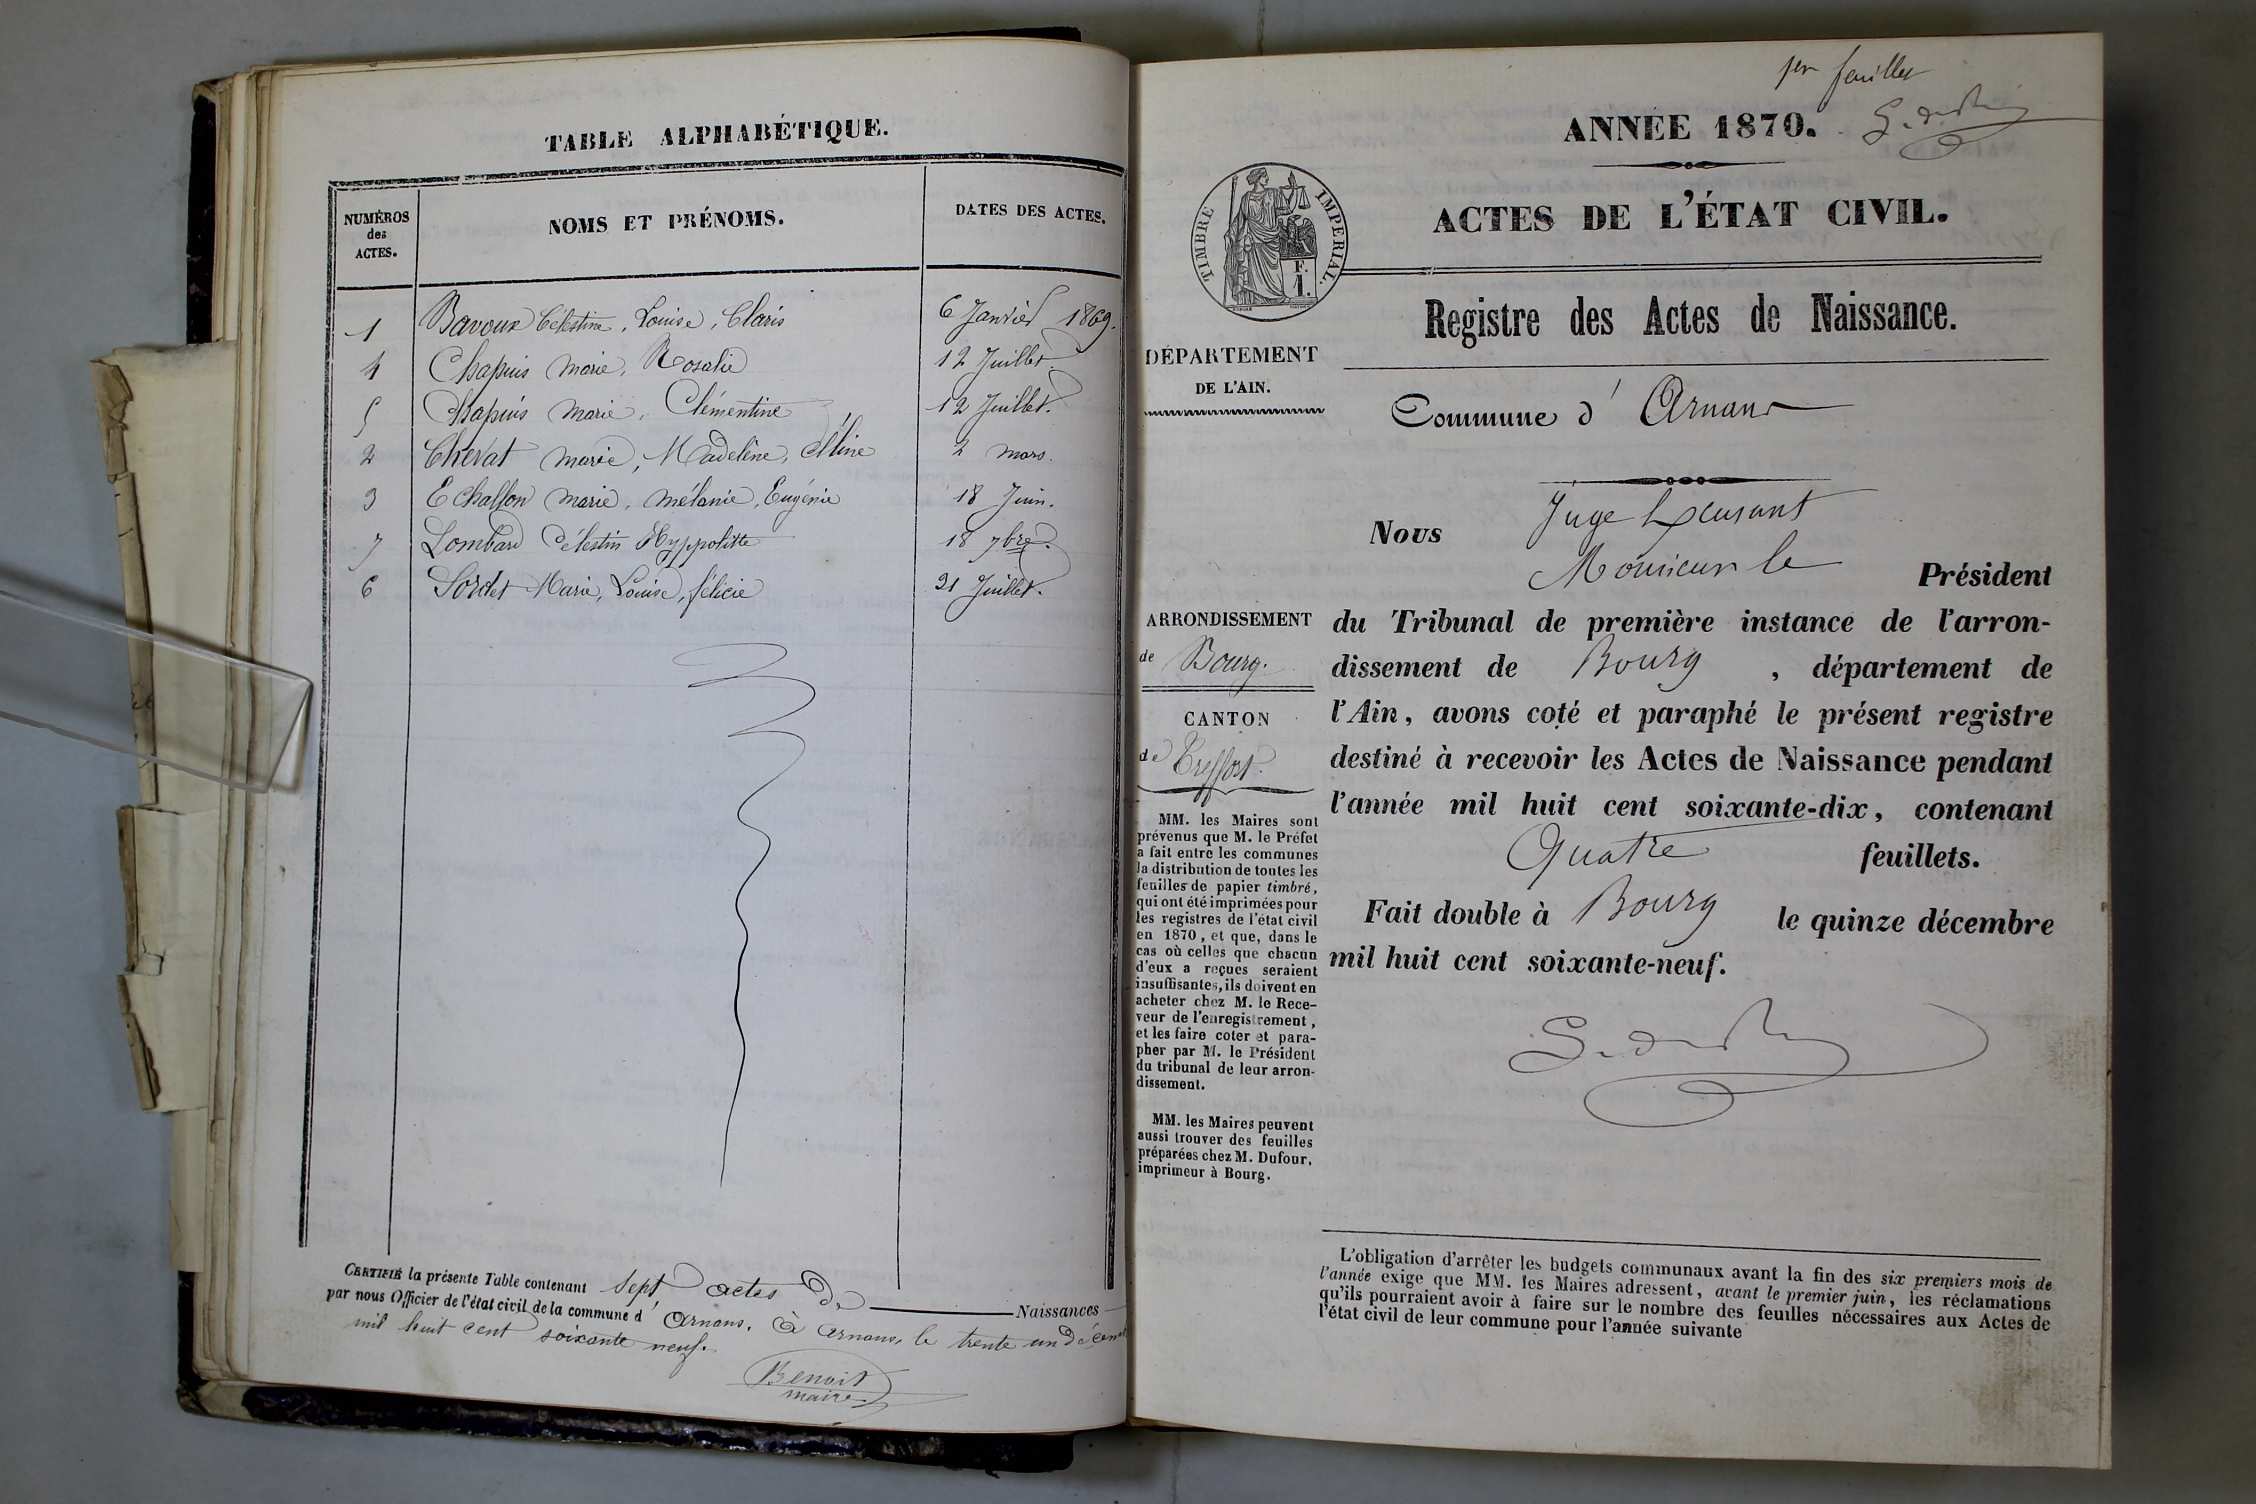 TABLE ALPHABÉTIQUE.
NUMÉROS
des
ACTES.
NOMS ET PRÉNOMS.
DATES DES ACTES.
1 Bavoux Célestine, Louise, Claris 6 Janvier 1869.
4 Chapuis marie, Rosalie 12 Juillet.
5 Chapuis marie, Clémentine 12 Juillet.
2 Chevat marie, Madeleine, Céline 2 mars.
3 Echallon marie, mélanie, Eugénie 18 Juin.
7 Lombard Célestin Hyppolitte 18 7bre.
6 Sordet Marie, Louise, félicie 31 Juillet.
CERTIFIÉ la présente Table contenant Sept actes de Naissances
par nous Officier de l'état civil de la commune d' Arnans. à Arnans, le trente un décem
mil huit cent soixante neuf.
Benoit
maire
1er feuillet
ANNÉE 1870.
ACTES DE L'ÉTAT CIVIL.
TIMBRE IMPERIAL.
F.
1.
Registre des Actes de Naissance.
DÉPARTEMENT
DE L'AIN.
Commune d' Arnans
Nous Juge
Monsieur le Président
du Tribunal de première instance de l'arron-
dissement de Bourg, département de
l'Ain, avons coté et paraphé le présent registre
destiné à recevoir les Actes de Naissance pendant
l'année mil huit cent soixante-dix, contenant
Quatre feuillets.
Fait double à Bourg le quinze décembre
mil huit cent soixante-neuf.
ARRONDISSEMENT
de Bourg.
CANTON
de Treffort.
MM. les Maires sont
prévenus que M. le Préfet
a fait entre les communes
la distribution de toutes les
feuilles de papier timbré,
qui ont été imprimées pour
les registres de l'état civil
en 1870, et que, dans le
cas où celles que chacun
d'eux a reçues seraient
insuffisantes, ils doivent en
acheter chez M. le Rece-
veur de l'enregistrement,
et les faire coter et para-
pher par M. le Président
du tribunal de leur arron-
dissement.
MM. les Maires peuvent
aussi trouver des feuilles
préparées chez M. Dufour,
imprimeur à Bourg.
L'obligation d'arrêter les budgets communaux avant la fin des six premiers mois de
l'année exige que MM. les Maires adressent, avant le premier juin, les réclamations
qu'ils pourraient avoir à faire sur le nombre des feuilles nécessaires aux Actes de
l'état civil de leur commune pour l'année suivante